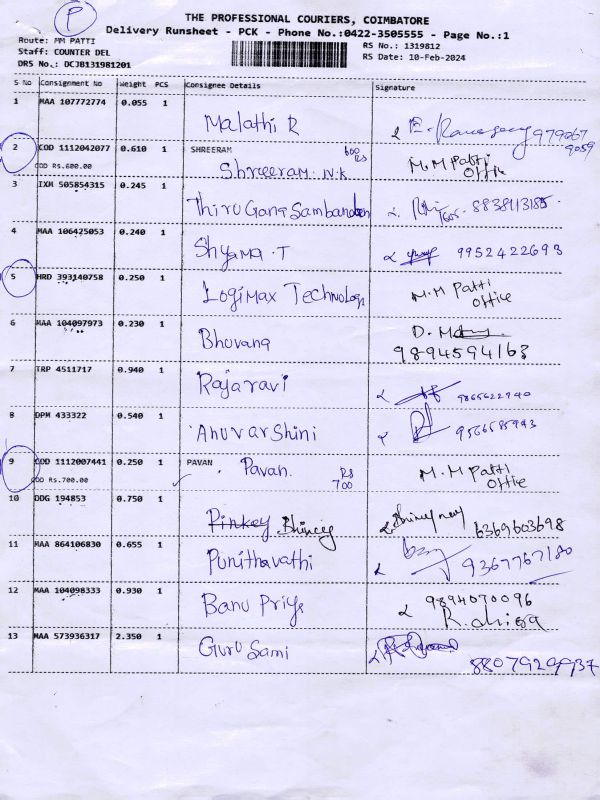 P
THE PROFESSIONAL COURIERS, COIMBATORE
Delivery Runsheet - PCK - Phone No.:0422-3505555 - Page No.:1
Route: MM PATTI
RS No.: 1319812
Staff: COUNTER DEL
RS Date: 10-Feb-2024
DRS No.: DCJB131981201
S No Consignment No Weight PCS Consignee Details Signature
1 MAA 107772774 0.055 1
Malathi R
979067
9059
2 COD 1112042077 0.610 1 SHREERAM 600 Rs
COD Rs.600.00 Shreeram. N.K M.M Patti Office
3 IXM 505854315 0.245 1
Thiru Gana Sambandan 8838113185
4 MAA 106425053 0.240 1
Shyama . T 9952422693
5 HRD 393140758 0.250 1
Logimax Technology M.M Patti Office
6 MAA 104097973 0.230 1
Bhuvana 9894594163
7 TRP 4511717 0.940 1
Rajaravi 9865622740
8 DPM 433322 0.540 1
Anuvarshini 9566585943
9 COD 1112007441 0.250 1 PAVAN Pavan. Rs 700 M.M Patti Office
COD Rs.700.00
10 DDG 194853 0.750 1
Pinkey 6369603698
11 MAA 864106830 0.655 1
Punithavathi 9367767180
12 MAA 104098333 0.930 1
Banu Priya 9894070096
13 MAA 573936317 2.350 1
Guru Sami 8807929937